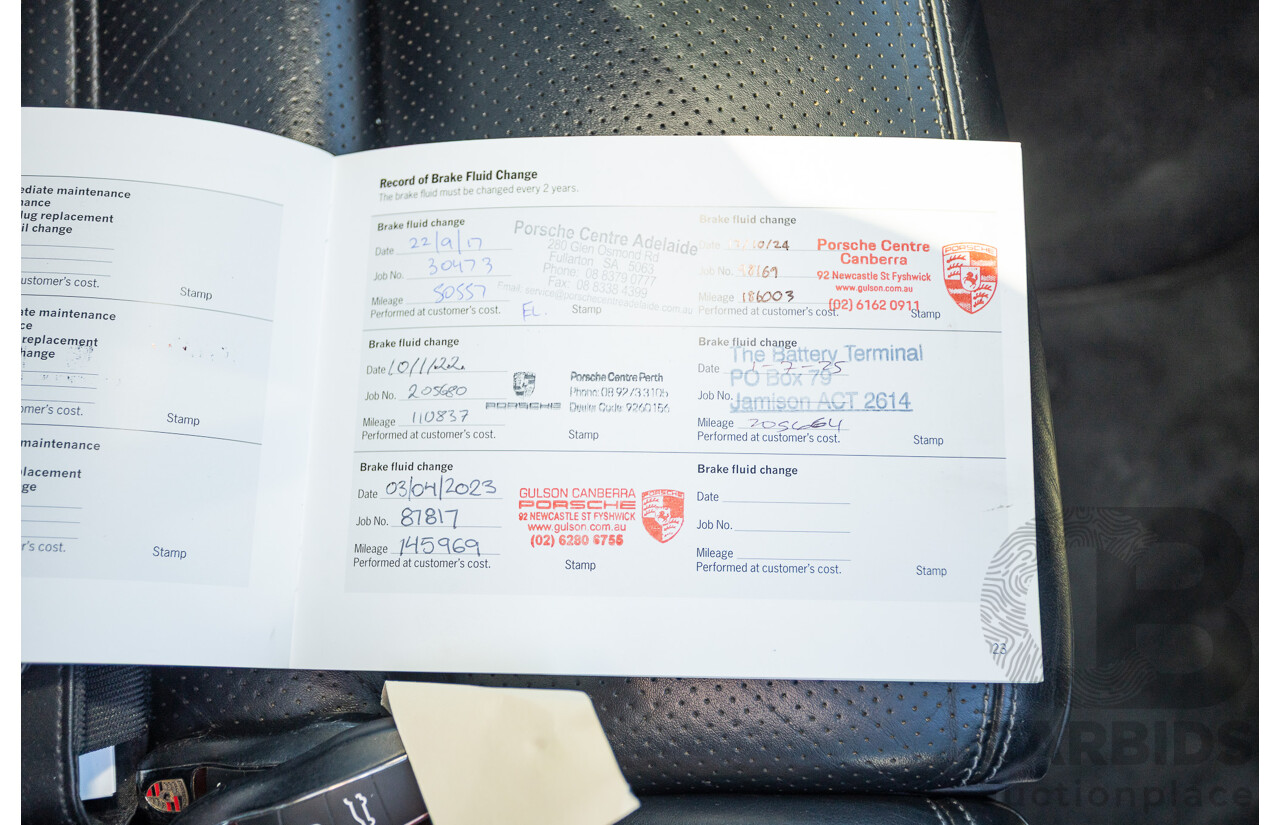 ediate maintenance
nance
lug replacement
il change
ustomer's cost.
Stamp
ate maintenance
ce
replacement
hange
omer's cost.
Stamp
maintenance
lacement
ge
r's cost.
Stamp
Record of Brake Fluid Change
The brake fluid must be changed every 2 years.
Brake fluid change
Date 22/9/17
Job No. 30473
Mileage 50557
Performed at customer's cost.
EL.
Porsche Centre Adelaide
280 Glen Osmond Rd
Fullarton SA 5063
Phone: 08 8379 0777
Fax: 08 8338 4399
Email: service@porschecentreadelaide.com.au
Stamp
Brake fluid change
Date /10/24
Job No. 98169
Mileage 186003
Performed at customer's cost.
Porsche Centre
Canberra
92 Newcastle St Fyshwick
www.gulson.com.au
(02) 6162 0911
PORSCHE
Stamp
Brake fluid change
Date 10/1/22
Job No. 205680
Mileage 110837
Performed at customer's cost.
PORSCHE
Porsche Centre Perth
Phone: 08 9273 3105
Dealer Code: 9260156
Stamp
Brake fluid change
Date 1-7-25
Job No.
Mileage 205664
Performed at customer's cost.
The Battery Terminal
PO Box 79
Jamison ACT 2614
Stamp
Brake fluid change
Date 03/04/2023
Job No. 87817
Mileage 145969
Performed at customer's cost.
GULSON CANBERRA
PORSCHE
92 NEWCASTLE ST FYSHWICK
www.gulson.com.au
(02) 6280 6755
PORSCHE
Stamp
Brake fluid change
Date
Job No.
Mileage
Performed at customer's cost.
Stamp
23
CB
ARBIDS
uctionplace